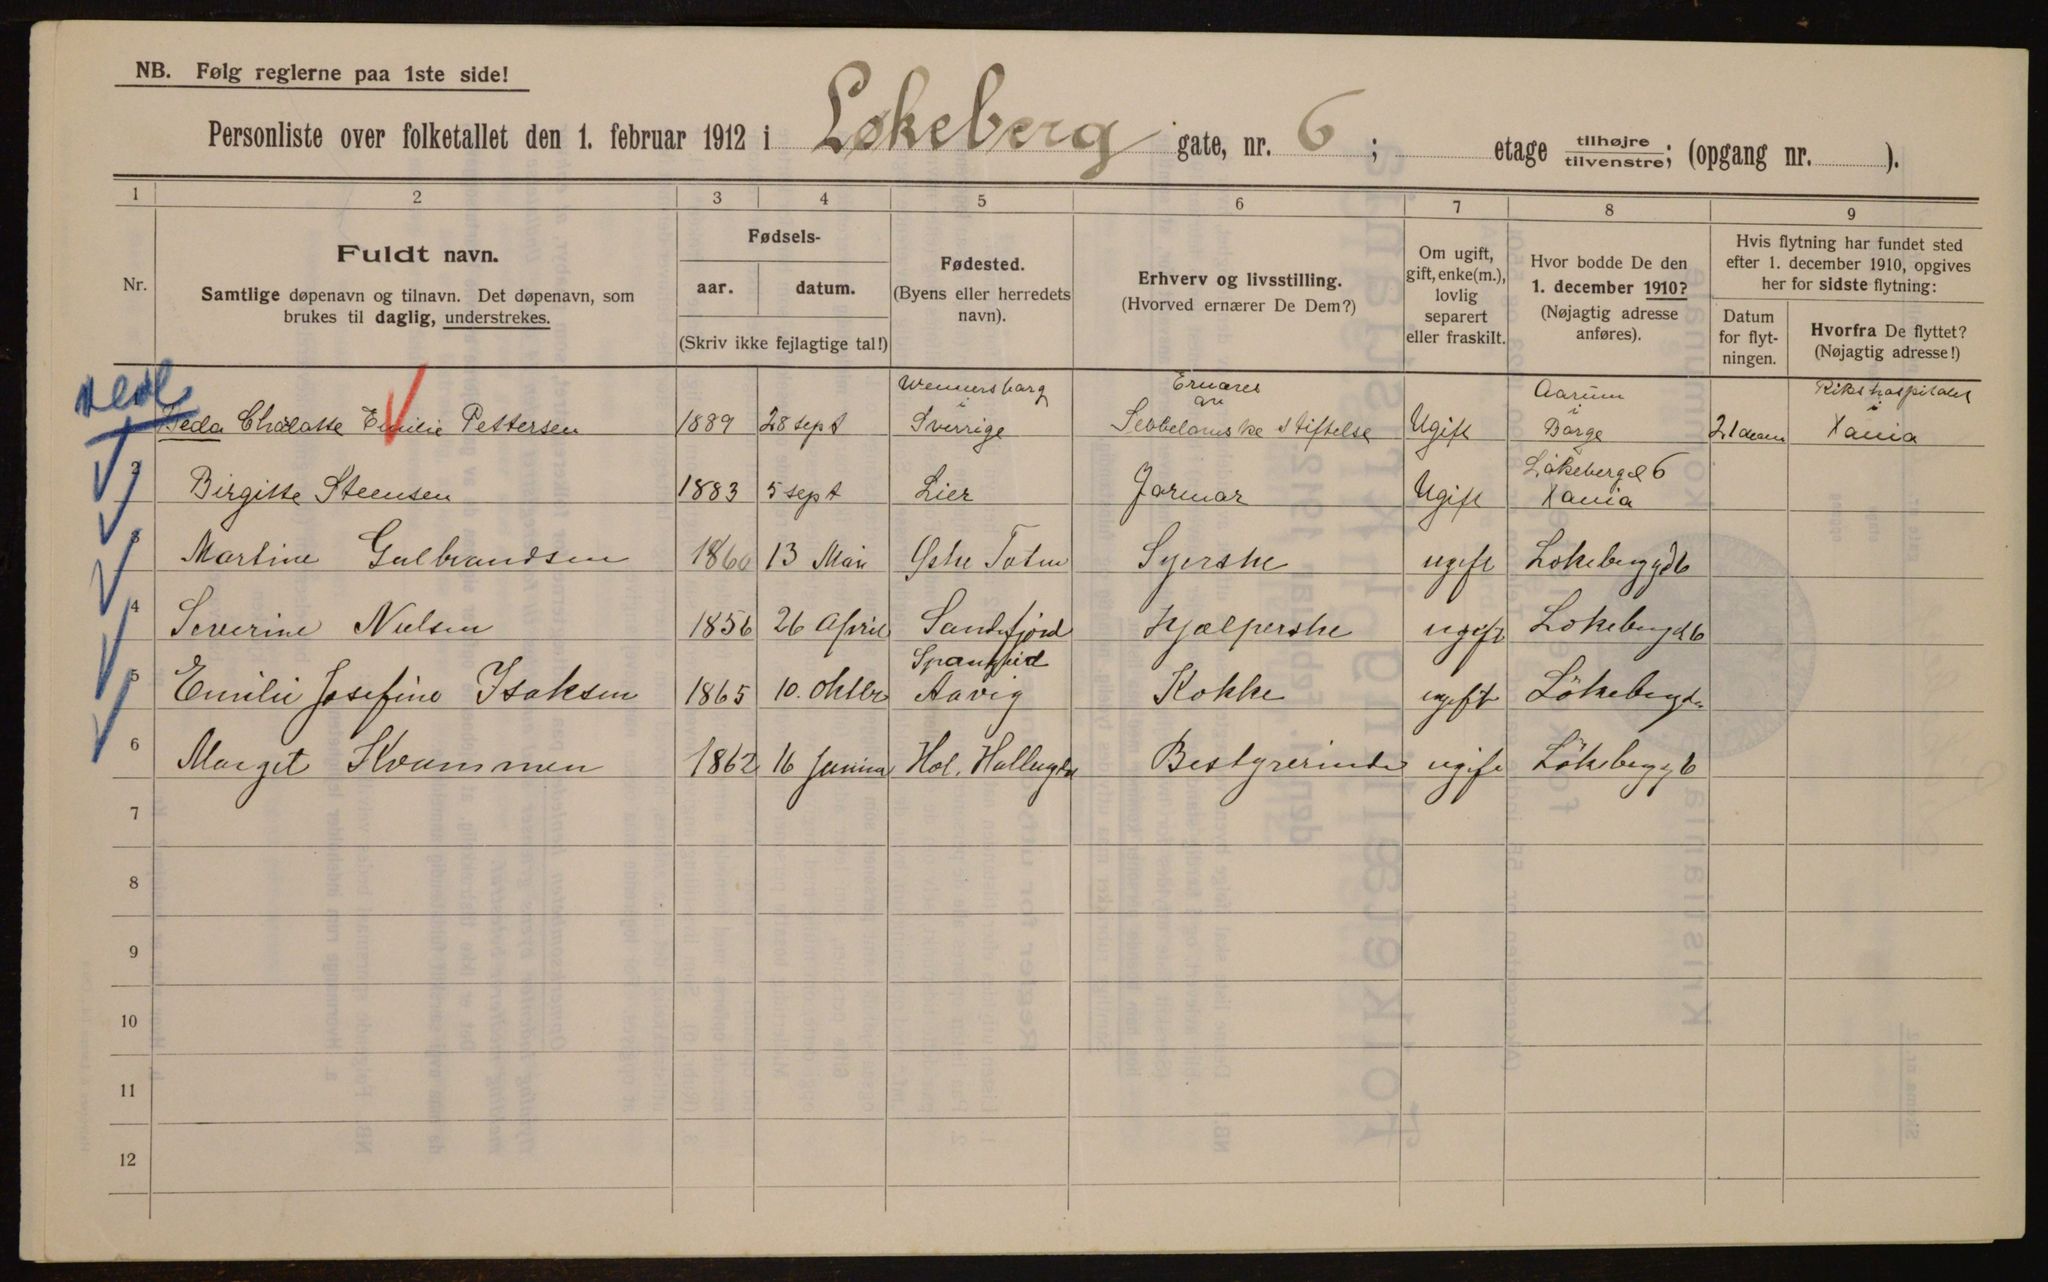 NB. Følg reglerne paa 1ste side!
Personliste over folketallet den 1. februar 1912 i Løkeberg gate, nr. 6; etage tilhøjre tilvenstre; (opgang nr. ).
1 2 3 4 5 6 7 8 9
Nr.
Fuldt navn.
Samtlige døpenavn og tilnavn. Det døpenavn, som
brukes til daglig, understrekes.
Fødsels-
aar. datum.
(Skriv ikke fejlagtige tal!)
Fødested.
(Byens eller herredets
navn).
Erhverv og livsstilling.
(Hvorved ernærer De Dem?)
Om ugift,
gift, enke(m.),
lovlig
separert
eller fraskilt.
Hvor bodde De den
1. december 1910?
(Nøjagtig adresse
anføres).
Hvis flytning har fundet sted
efter 1. december 1910, opgives
her for sidste flytning:
Datum
for flyt-
ningen.
Hvorfra De flyttet?
(Nøjagtig adresse!)
Beda Emilie Pettersen 1889 28 sept Wennersborg i Sverrige Ernæres av Stiftelse Ugift Aarum i Borge 21 Rikshospitalet i Xania
2 Birgitte Steensen 1883 5 sept Lier Jormor Ugift Lökeberggd 6 Xania
3 Martine Gulbrandsen 1860 13 Mai Østre Toten Syerske ugift
4 Severine Nielsen 1856 26 April Sandefjord Hjælperske ugift
5 Emilie Josefine Isaksen 1865 10. Oktbr Aavig Kokke ugift
6 Margit Kvammen 1862 16 Hol. Bestyrerinde ugift
7
8
9
10
11
12